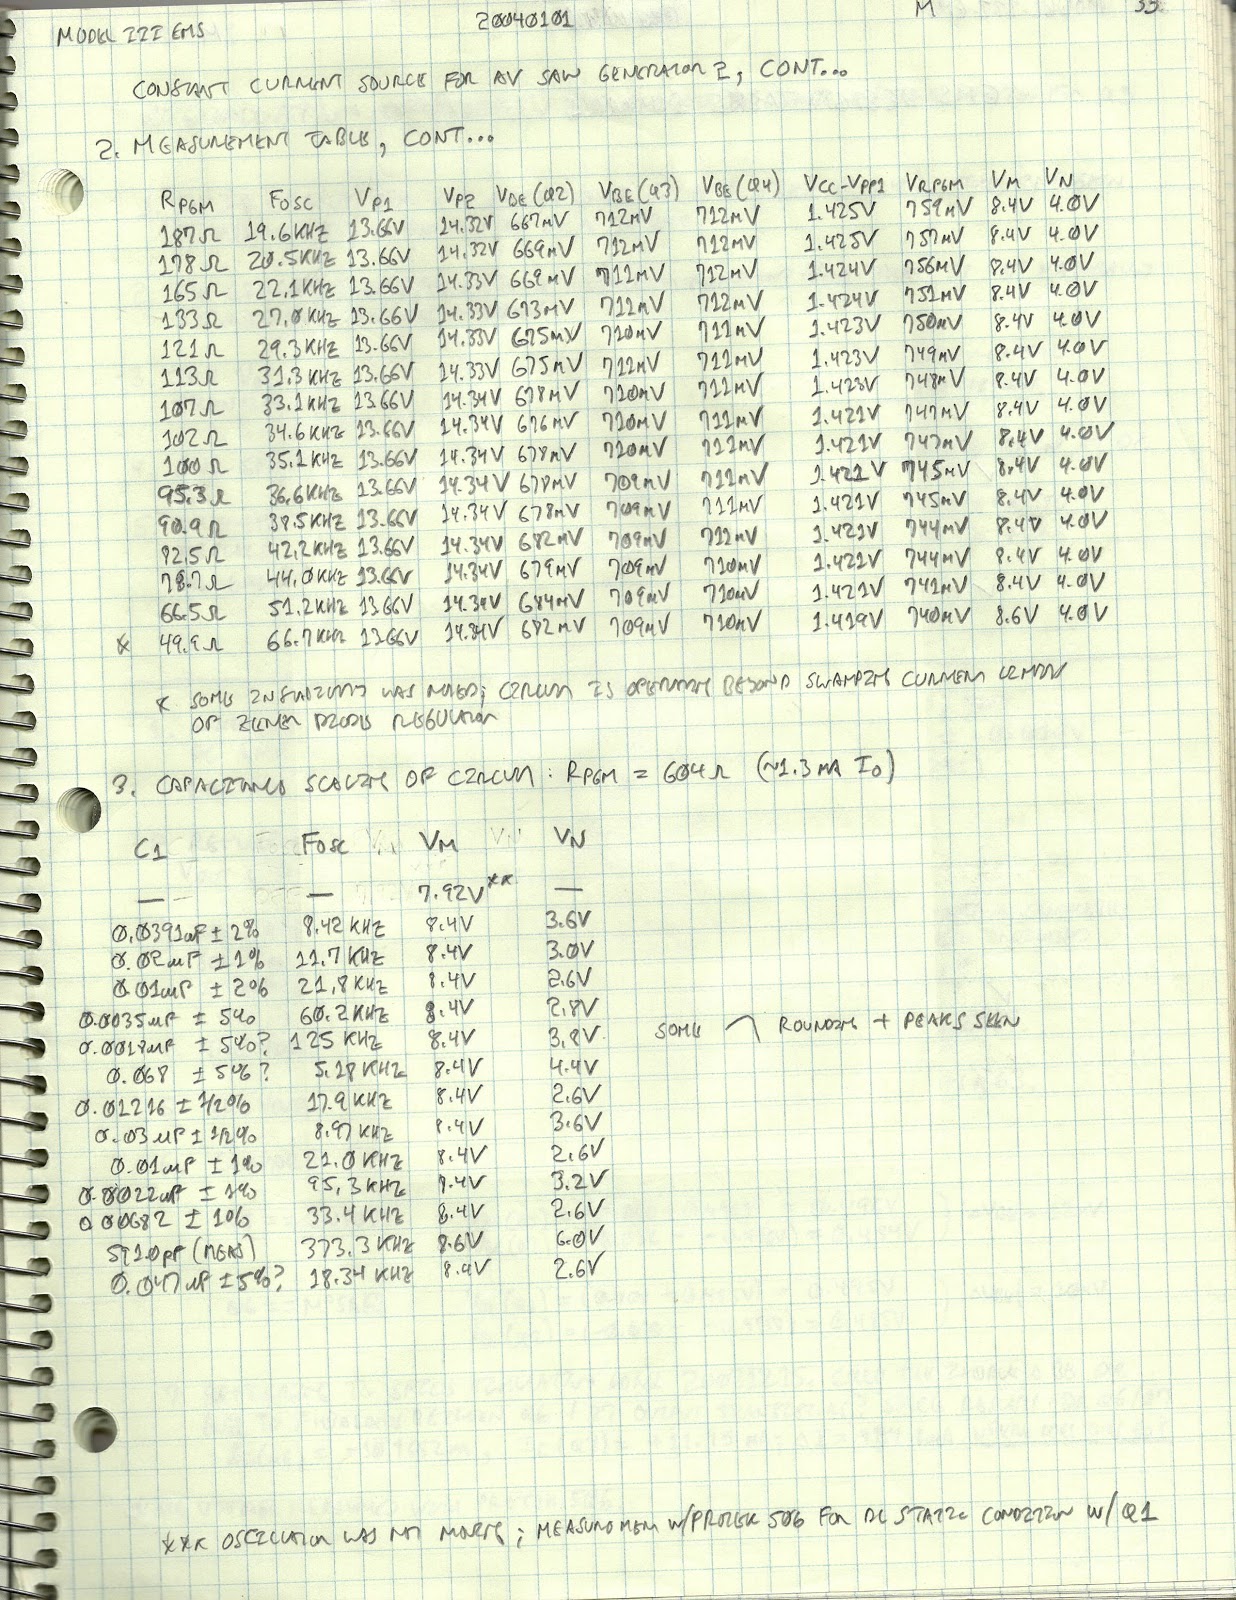 MODEL III EMS 20040101 M 33
CONSTANT CURRENT SOURCE FOR AV SAW GENERATOR 2, CONT...
2. MEASUREMENT TABLE, CONT...
RPGM FOSC VP1 VP2 VBE(Q2) VBE(Q3) VBE(Q4) VCC-VPP1 VRPGM VM VN
187Ω 19.6KHZ 13.66V 14.32V 667mV 712mV 712mV 1.425V 759mV 8.4V 4.0V
178Ω 20.5KHZ 13.66V 14.32V 669mV 712mV 712mV 1.425V 757mV 8.4V 4.0V
165Ω 22.1KHZ 13.66V 14.33V 669mV 711mV 712mV 1.424V 756mV 8.4V 4.0V
133Ω 27.0KHZ 13.66V 14.33V 673mV 711mV 712mV 1.424V 751mV 8.4V 4.0V
121Ω 29.3KHZ 13.66V 14.33V 675mV 710mV 711mV 1.423V 750mV 8.4V 4.0V
113Ω 31.3KHZ 13.66V 14.33V 675mV 711mV 711mV 1.423V 749mV 8.4V 4.0V
107Ω 33.1KHZ 13.66V 14.34V 678mV 710mV 711mV 1.423V 748mV 8.4V 4.0V
102Ω 34.6KHZ 13.66V 14.34V 676mV 710mV 711mV 1.421V 747mV 8.4V 4.0V
100Ω 35.1KHZ 13.66V 14.34V 678mV 710mV 711mV 1.421V 747mV 8.4V 4.0V
95.3Ω 36.6KHZ 13.66V 14.34V 678mV 709mV 711mV 1.421V 745mV 8.4V 4.0V
90.9Ω 38.5KHZ 13.66V 14.34V 678mV 709mV 711mV 1.421V 745mV 8.4V 4.0V
82.5Ω 42.2KHZ 13.66V 14.34V 682mV 709mV 711mV 1.421V 744mV 8.4V 4.0V
78.7Ω 44.0KHZ 13.66V 14.34V 679mV 709mV 710mV 1.421V 744mV 8.4V 4.0V
66.5Ω 51.2KHZ 13.66V 14.34V 684mV 709mV 710mV 1.421V 741mV 8.4V 4.0V
* 49.9Ω 66.7KHZ 13.66V 14.34V 682mV 709mV 710mV 1.419V 740mV 8.6V 4.0V
* SOME INSTABILITY WAS NOTED; CIRCUIT IS OPERATING BEYOND SWAMPING CURRENT LIMITS
OF ZENER DIODE REGULATOR
3. CAPACITANCE SCALING OF CIRCUIT: RPGM = 604Ω (~1.3 mA IO)
C1 FOSC VM VN
— — 7.92V** —
0.0391uF ± 2% 8.42 KHZ 8.4V 3.6V
0.02uF ± 1% 11.7 KHZ 8.4V 3.0V
0.01uF ± 2% 21.8 KHZ 8.4V 2.6V
0.0035uF ± 5% 60.2 KHZ 8.4V 2.8V
0.0018uF ± 5%? 125 KHZ 8.4V 3.8V SOME ROUNDING + PEAKS SEEN
0.068 ± 5%? 5.18 KHZ 8.4V 4.4V
0.01216 ± 1/2% 17.9 KHZ 8.4V 2.6V
0.03uF ± 1/2% 8.97 KHZ 8.4V 3.6V
0.01uF ± 1% 21.0 KHZ 8.4V 2.6V
0.0022uF ± 1% 95.3 KHZ 8.4V 3.2V
0.00682 ± 1% 33.4 KHZ 8.4V 2.6V
591.0pF (MEAS) 373.3 KHZ 8.6V 6.0V
0.047uF ± 5%? 18.34 KHZ 8.4V 2.6V
*** OSCILLATOR WAS NOT ; MEASUREMENT W/PROTEK 506 FOR DC STATIC CONDITION W/Q1